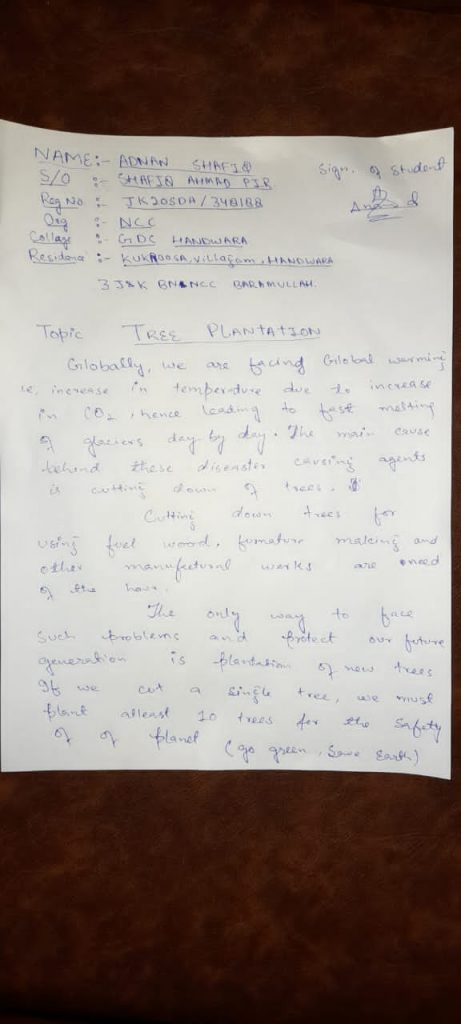 NAME:- ADNAN SHAFIQ
Sign. of student
S/O :- SHAFIQ AHMAD PIR
Reg No. :- JK20SDA/348188
Org :- NCC
Collage :- GDC HANDWARA
Residance :- KUKROOSA, villagam, HANDWARA
3 J&K BN NCC BARAMULLAH.
Topic TREE PLANTATION
Globally, we are facing Global warming
ie, increase in temperature due to increase
in CO2, hence leading to fast melting
of glaciers day by day. The main cause
behind these disaster causing agents
is cutting down of trees.
Cutting down trees for
using fuel wood, furnature making and
other manufectural works are need
of the hour.
The only way to face
such problems and protect our future
generation is plantation of new trees
If we cut a single tree, we must
plant atleast 10 trees for the safety
of of planet (go green, Save Earth)